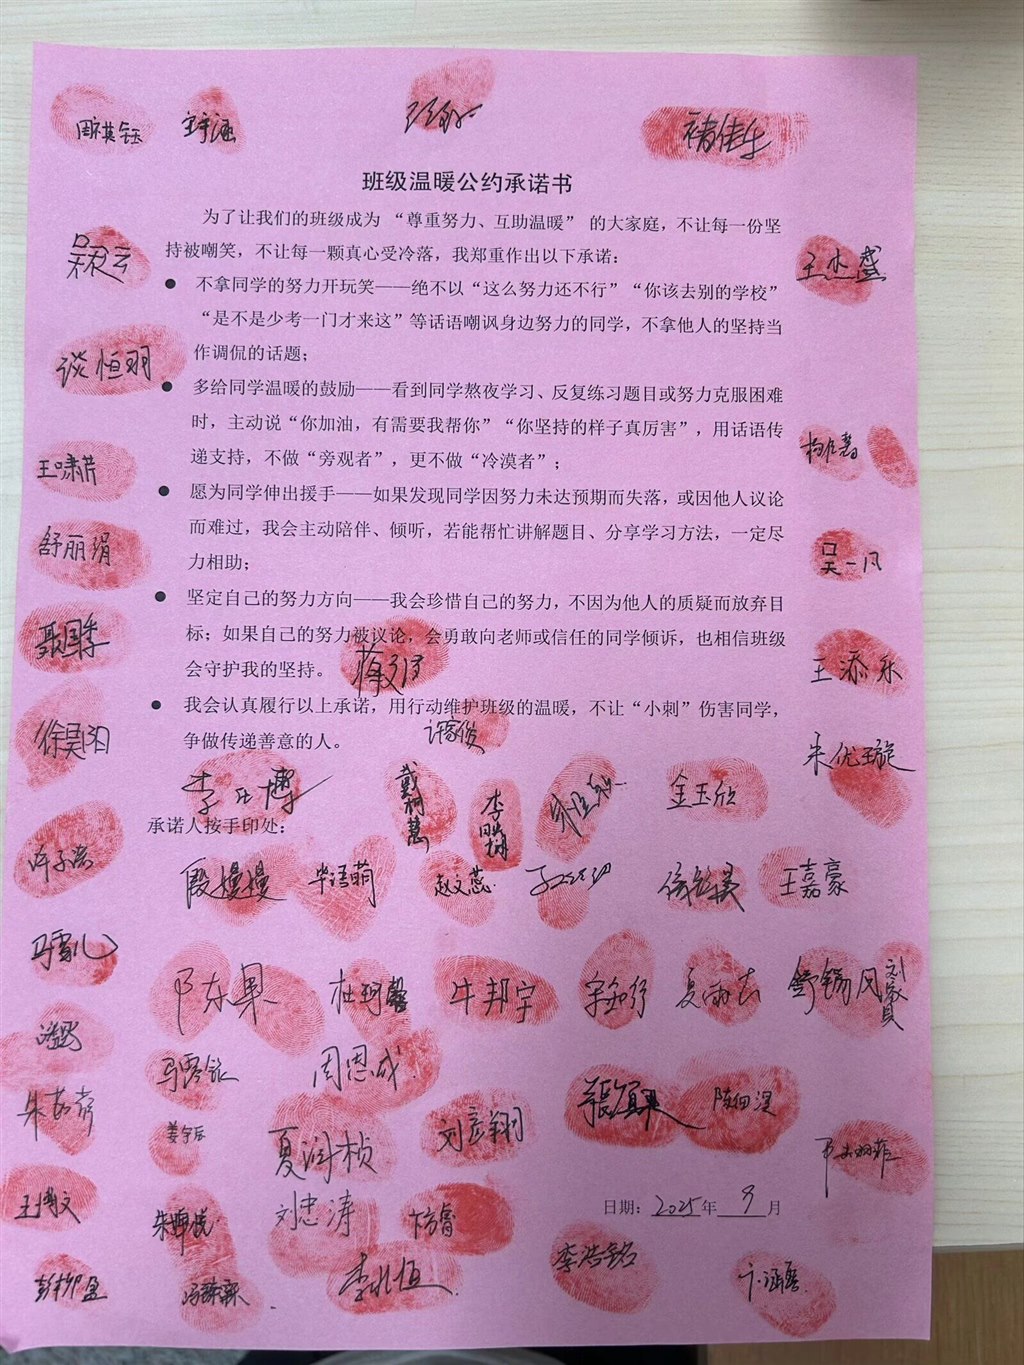 周祺钰
褚佳乐
班级温暖公约承诺书
为了让我们的班级成为 “尊重努力、互助温暖” 的大家庭，不让每一份坚
持被嘲笑，不让每一颗真心受冷落，我郑重作出以下承诺：
● 不拿同学的努力开玩笑——绝不以“这么努力还不行”“你该去别的学校”
“是不是少考一门才来这”等话语嘲讽身边努力的同学，不拿他人的坚持当
作调侃的话题；
● 多给同学温暖的鼓励——看到同学熬夜学习、反复练习题目或努力克服困难
时，主动说“你加油，有需要我帮你”“你坚持的样子真厉害”，用话语传
递支持，不做“旁观者”，更不做“冷漠者”；
● 愿为同学伸出援手——如果发现同学因努力未达预期而失落，或因他人议论
而难过，我会主动陪伴、倾听，若能帮忙讲解题目、分享学习方法，一定尽
力相助；
● 坚定自己的努力方向——我会珍惜自己的努力，不因为他人的质疑而放弃目
标；如果自己的努力被议论，会勇敢向老师或信任的同学倾诉，也相信班级
会守护我的坚持。
● 我会认真履行以上承诺，用行动维护班级的温暖，不让“小刺”伤害同学，
争做传递善意的人。
谈恒羽
王啸芹
舒丽娟
吴一凡
王添乐
徐昊阳
朱优璇
许家俊
戴柯慧
金玉欣
承诺人按手印处：
殷嫚嫚
毕语萌
赵文蕊
王嘉豪
马雪儿
牛邦宇
舒锡风
周恩成
夏润桢
刘彦翔
姜宇辰
刘忠涛
卞方睿
日期：2025年 9 月
李浩铭
卞涵磊